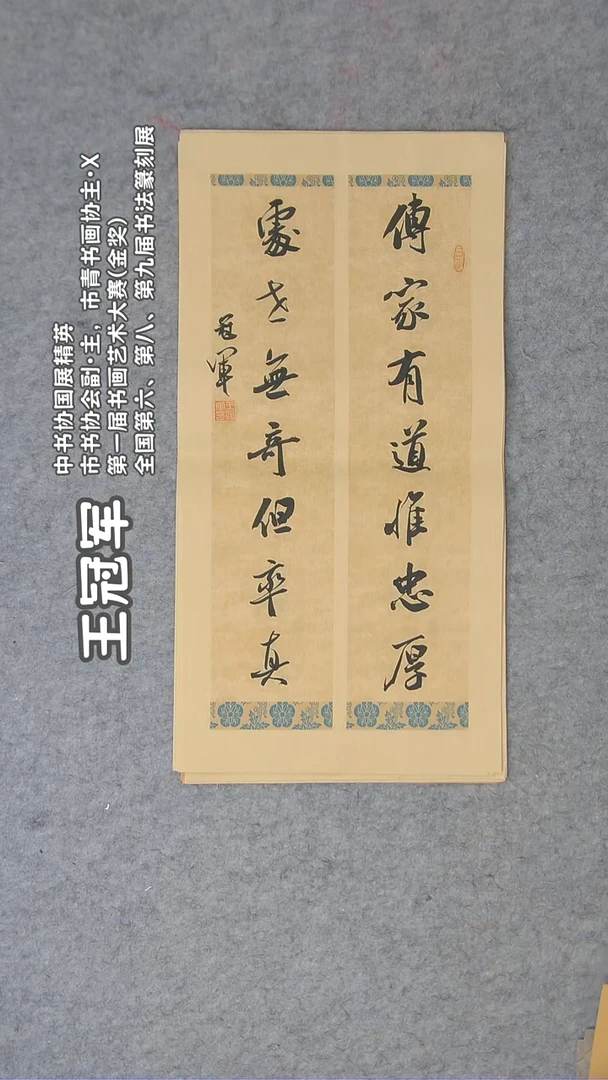 傳家有道惟忠厚
處世無奇但率真
冠軍
王冠军
中书协国展精英
市书协会副·主，市青书画协主·X
第一届书画艺术大赛(金奖)
全国第六、第八、第九届书法篆刻展